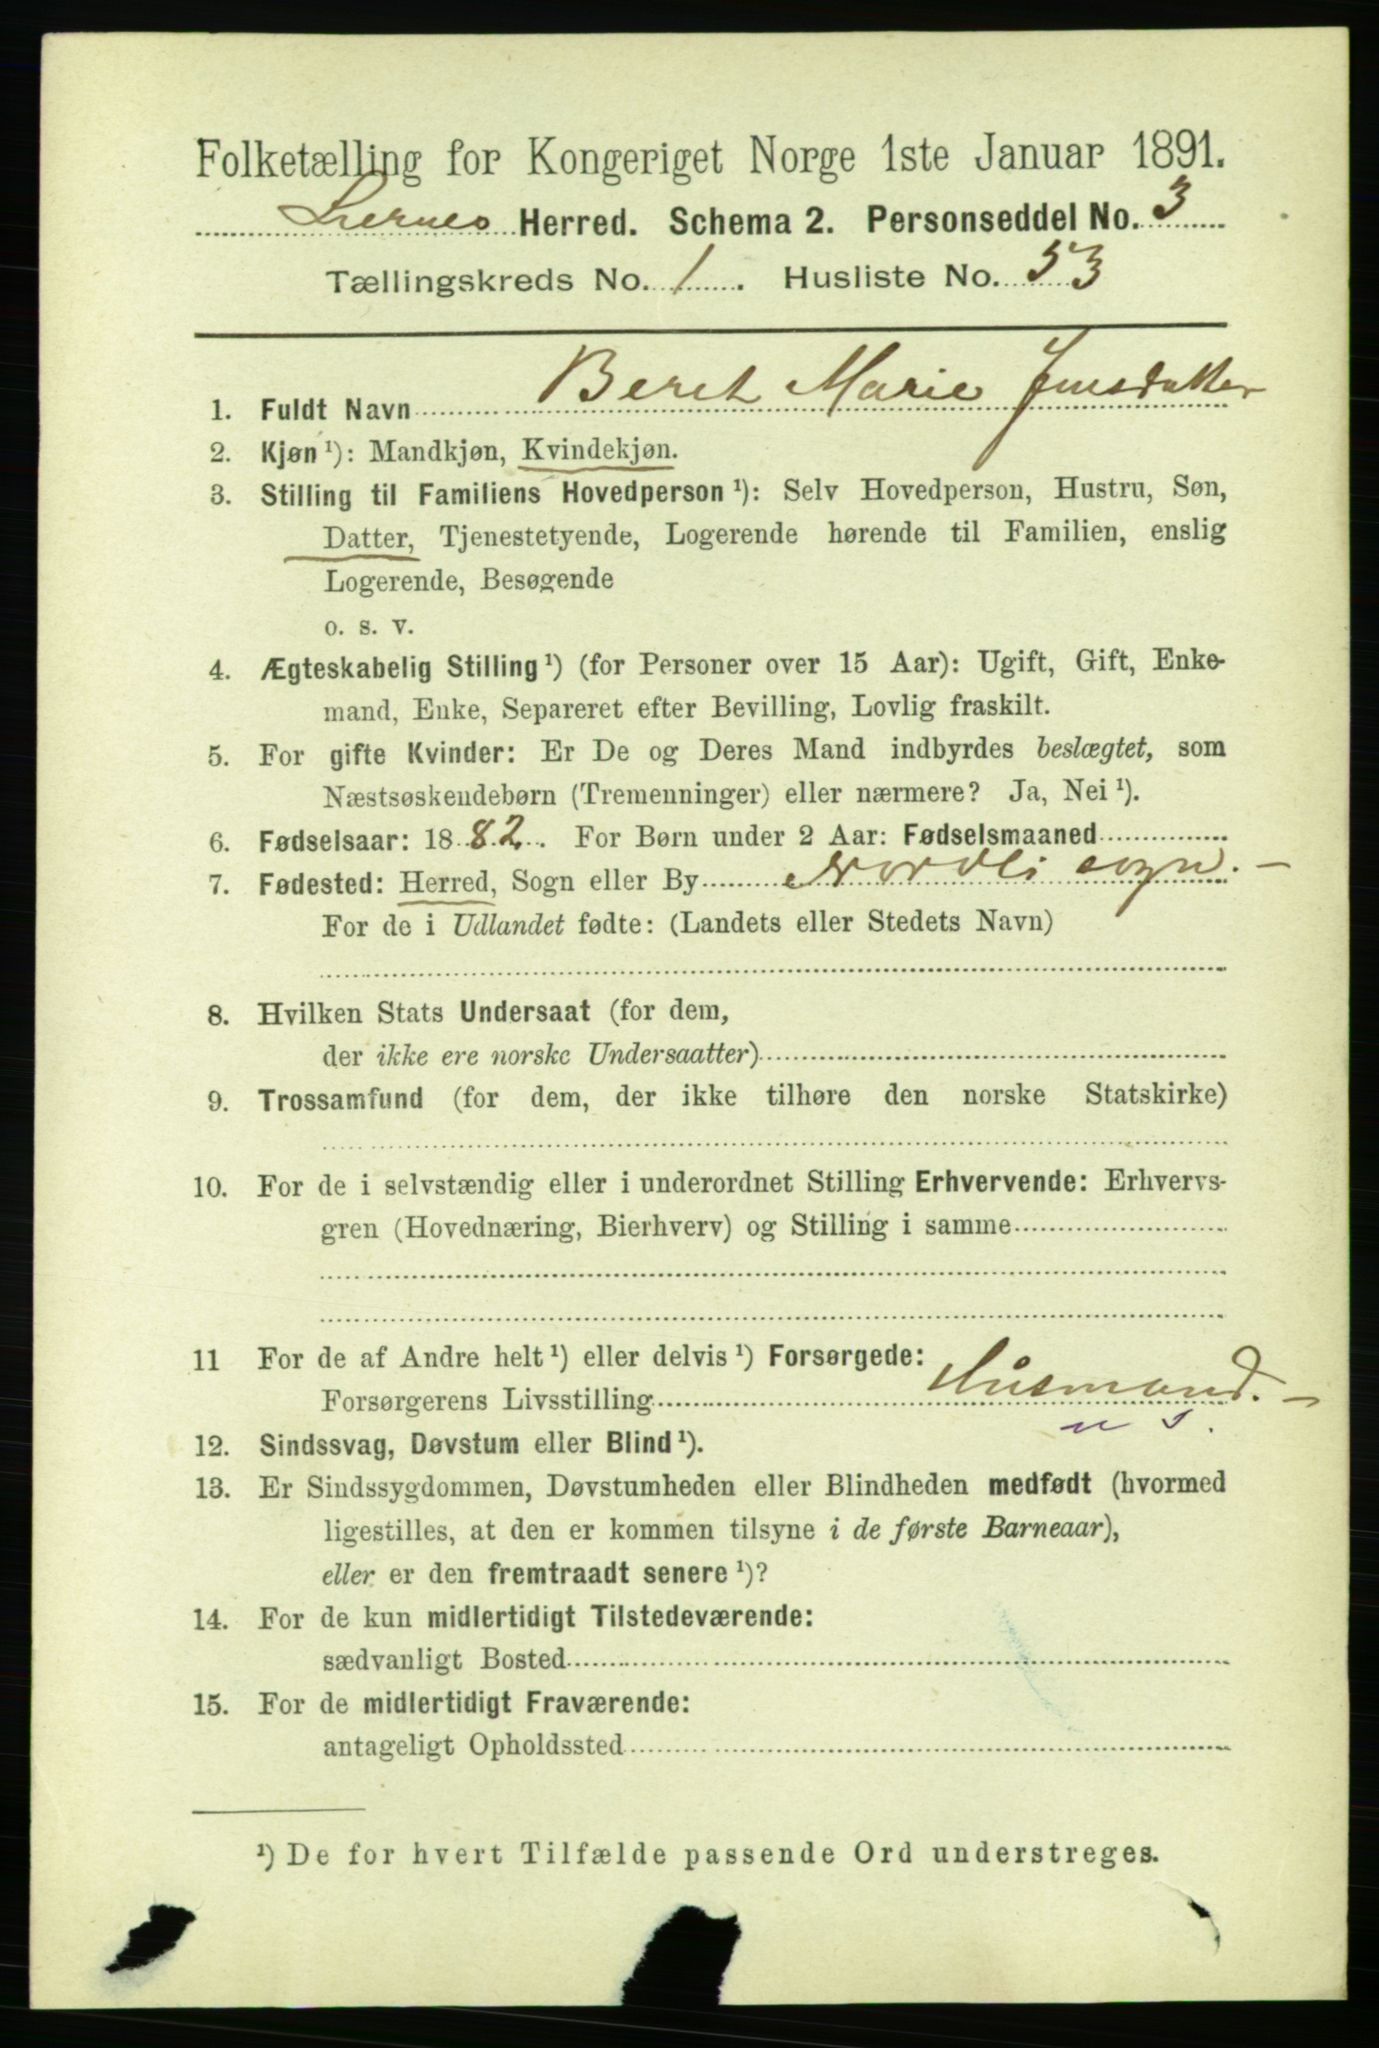 Folketælling for Kongeriget Norge 1ste Januar 1891.
Liernes Herred. Schema 2. Personseddel No. 3
Tællingskreds No. 1. Husliste No. 53
1. Fuldt Navn Beret Marie Jensdatter
2. Kjøn ¹): Mandkjøn, Kvindekjøn.
3. Stilling til Familiens Hovedperson ¹): Selv Hovedperson, Hustru, Søn,
Datter, Tjenestetyende, Logerende hørende til Familien, enslig
Logerende, Besøgende
o. s. v.
4. Ægteskabelig Stilling ¹) (for Personer over 15 Aar): Ugift, Gift, Enke-
mand, Enke, Separeret efter Bevilling, Lovlig fraskilt.
5. For gifte Kvinder: Er De og Deres Mand indbyrdes beslægtet, som
Næstsøskendebørn (Tremenninger) eller nærmere? Ja, Nei ¹).
6. Fødselsaar: 1882. For Børn under 2 Aar: Fødselsmaaned
7. Fødested: Herred, Sogn eller By Nordli sogn. —
For de i Udlandet fødte: (Landets eller Stedets Navn)
8. Hvilken Stats Undersaat (for dem,
der ikke ere norske Undersaatter)
9. Trossamfund (for dem, der ikke tilhøre den norske Statskirke)
10. For de i selvstændig eller i underordnet Stilling Erhvervende: Erhvervs-
gren (Hovednæring, Bierhverv) og Stilling i samme
11 For de af Andre helt ¹) eller delvis ¹) Forsørgede:
Forsørgerens Livsstilling Husmand. —
u s.
12. Sindssvag, Døvstum eller Blind ¹).
13. Er Sindssygdommen, Døvstumheden eller Blindheden medfødt (hvormed
ligestilles, at den er kommen tilsyne i de første Barneaar),
eller er den fremtraadt senere ¹)?
14. For de kun midlertidigt Tilstedeværende:
sædvanligt Bosted
15. For de midlertidigt Fraværende:
antageligt Opholdssted
¹) De for hvert Tilfælde passende Ord understreges.